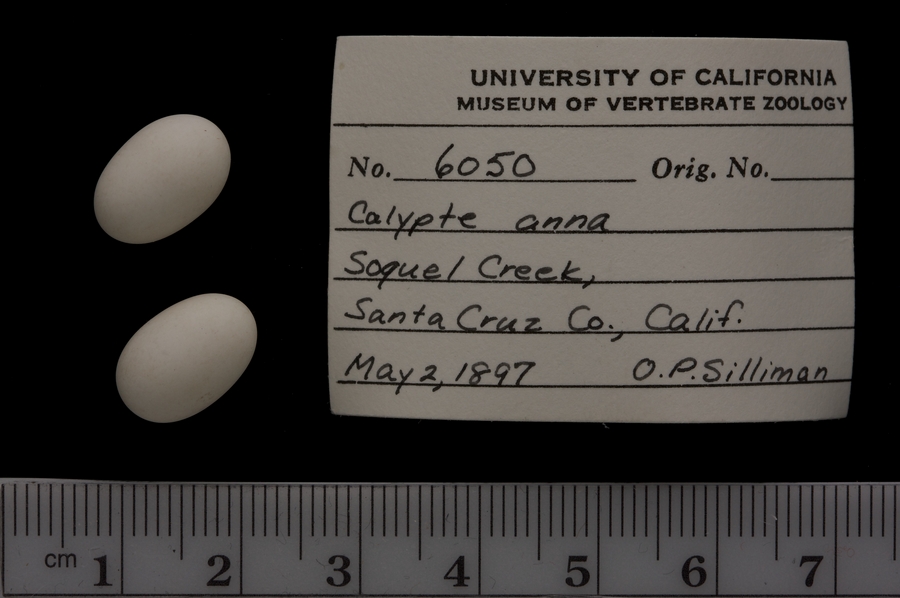 UNIVERSITY OF CALIFORNIA
MUSEUM OF VERTEBRATE ZOOLOGY
No. 6050 Orig. No.
Calypte anna
Soquel Creek,
Santa Cruz Co., Calif.
May 2, 1897 O.P. Silliman
cm 1 2 3 4 5 6 7